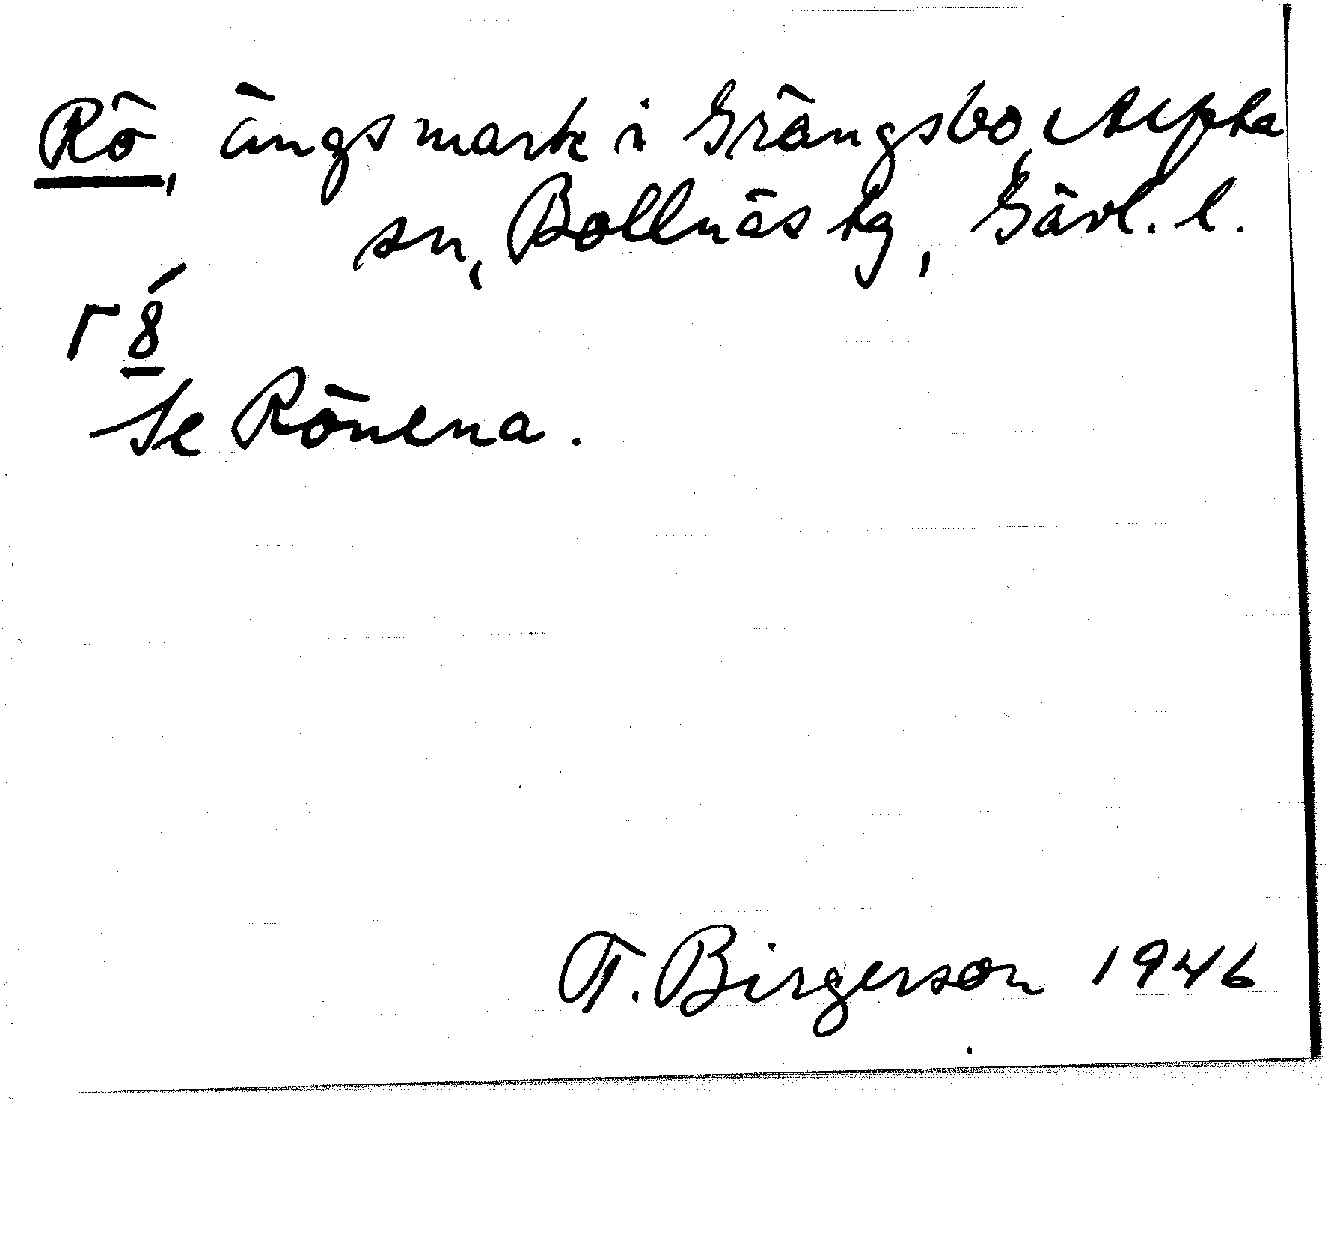 Rö, ängsmark i Grängsbo, Alfta
sn, Bollnäs tg, Gävl. l.
r 8́
Se Rönena.
T. Birgerson 1946